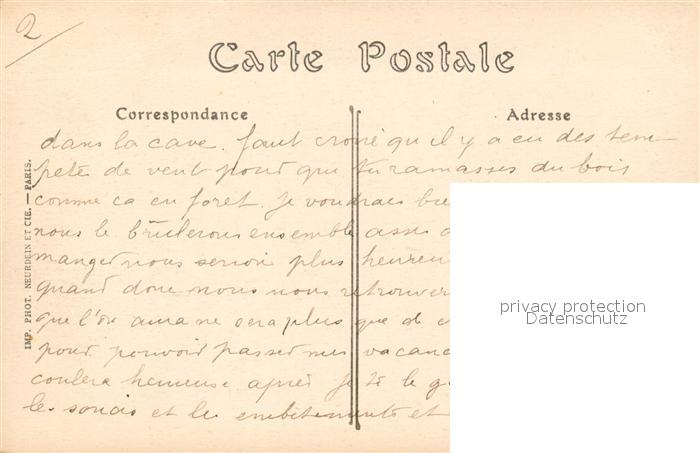 2
Carte Postale
Correspondance
Adresse
dans la cave. faut croire qu il y a eu des tem
pete de vent pour que tu ramasses du bois
comme ca en foret. Je voudrais
nous le brûlerons ensemble assis
manger nous serion plus heureu
quand donc nous nous retrouver
que l'on aura ne sera plus que de
pour pouvoir passer mes vacanc
coulera heureuse après Je te le
les soucis et les embêtements et
IMP. PHOT. NEURDEIN ET CIE. — PARIS.
privacy protection
Datenschutz